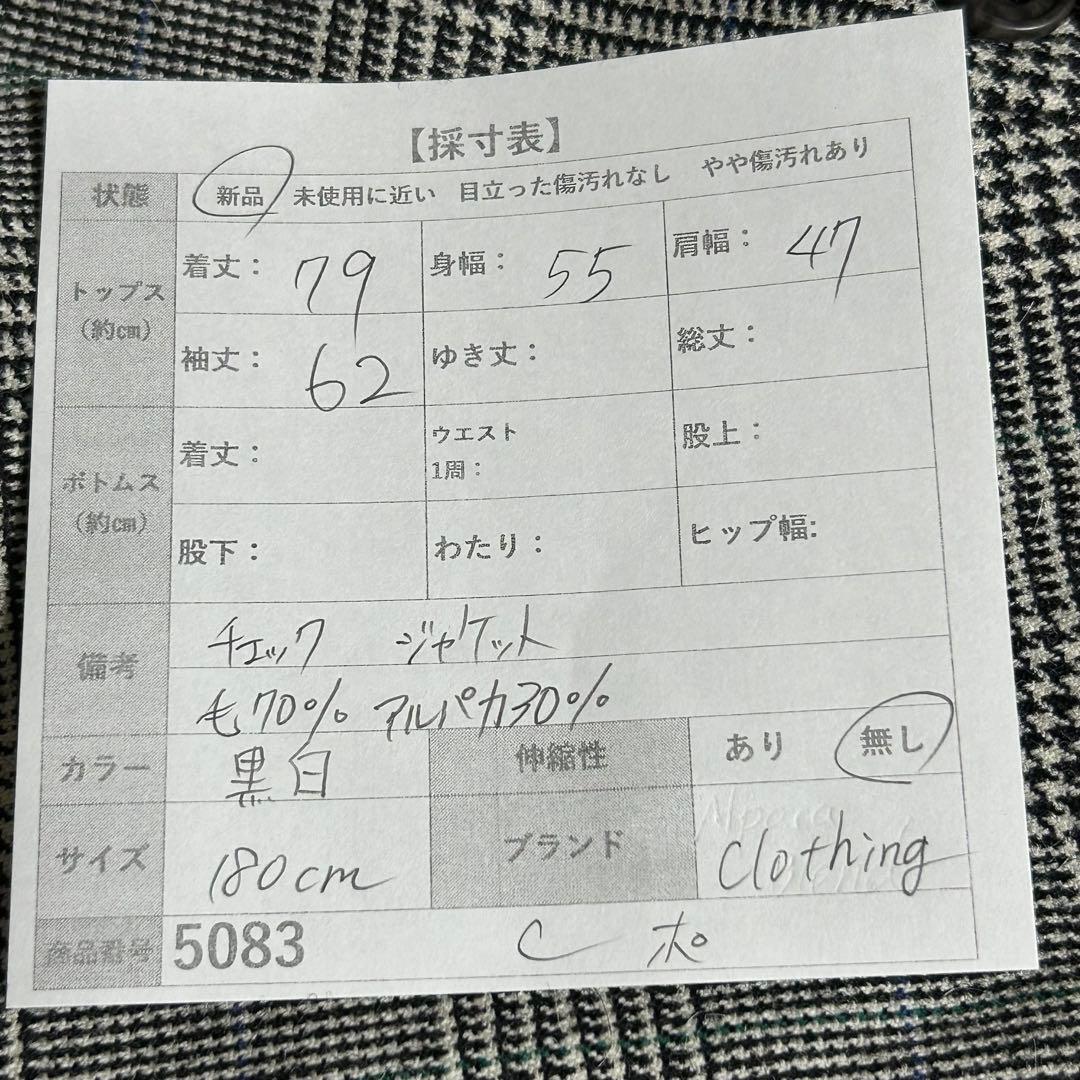 【採寸表】
状態 新品 未使用に近い 目立った傷汚れなし やや傷汚れあり
トップス (約cm)
着丈： 79 身幅： 55 肩幅： 47
袖丈： 62 ゆき丈： 総丈：
ボトムス (約cm)
着丈： ウエスト 1周： 股上：
股下： わたり： ヒップ幅:
備考 チェック ジャケット
毛70% アルパカ30%
カラー 黒白 伸縮性 あり 無し
サイズ 180cm ブランド Clothing
商品番号 5083 C ポ